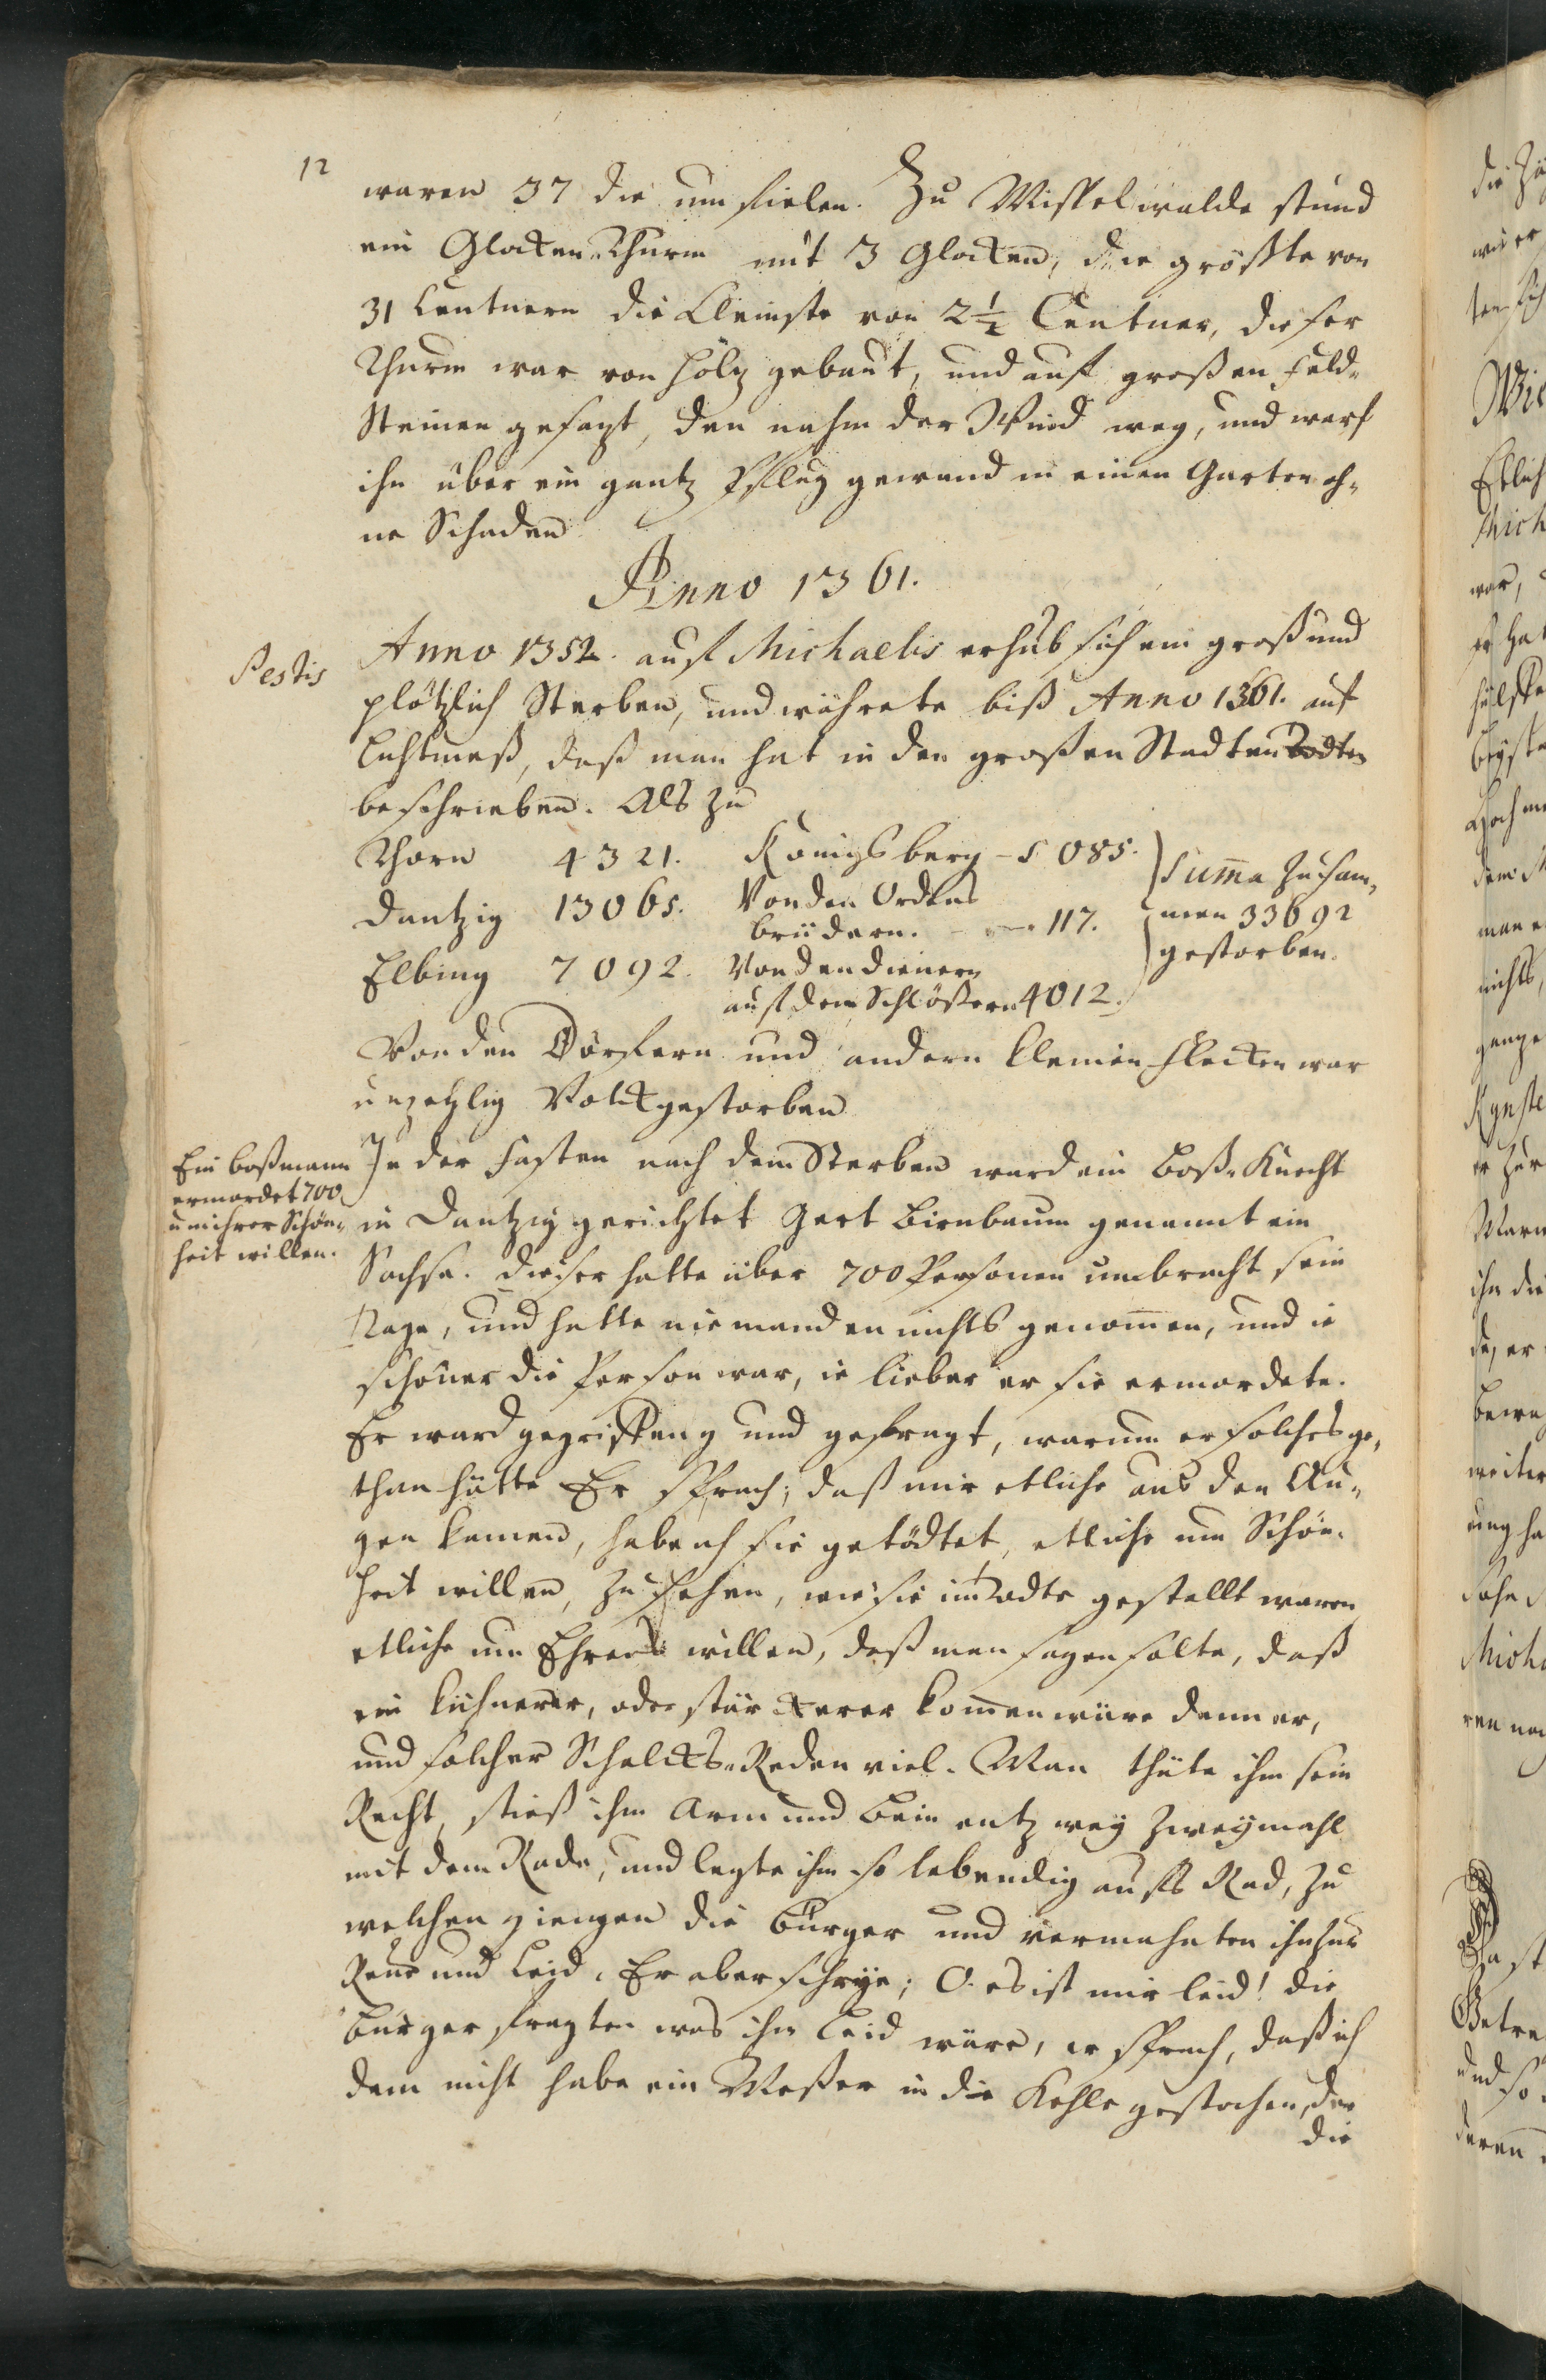 12
waren 37 die um fielen. Zu Mispelwalde stund
ein Glocken-Thurm mit 3 Glocken, die gröste von
31 Centnern die Kleinste von 2½ Centner, dieser
Thurm war von Holtz gebaut, und auf großen Feld-
Steinen gesezt, den nahm der Wind weg, und warf
ihn über ein gantz Pflug gewand in einen Garten oh-
ne Schaden
Anno 1361.
Pestis
Anno 1352. auf Michaelis erhub sich ein groß und
plötzlich Sterben, und währete biß Anno 1361. auf
Lichtmeß, daß man hat in den großen Stadten Todten
beschrieben. Als zu
Thorn 4321. Königsberg - 5085.
Dantzig 13065. Von den Ordens
brüdern. - - 117.
Elbing 7092. Von den dienern
auf den Schlößern 4012.
Summa zusam-
men 33692
gestorben.
Von den Dörfern und andern kleinen Flecken war
unzehlig Volck gestorben
Ein boßmann
ermordet 700
um ihrer Schön-
heit willen.
In der Fasten nach dem Sterben ward ein Boß-Knecht
in Dantzig gerichtet Gert Birnbaum genannt ein
Sachse. dieser hatte über 700 Personen umbracht sein
Tage, und hatte niemanden nichts genommen, und ie
schöner die Person war, ie lieber er sie ermordete.
Er ward gegriffen und gefragt, warum er solches ge-
than hätte Er sprach; daß mir etliche aus den Au-
gen kamen, habe ich sie getödtet, etliche um Schön-
heit willen, zu sehen, wie sie im Todte gestellt waren
etliche um Ehren willen, daß man sagen solte, daß
ein kühnerer, oder stärckerer kommen wäre denn er,
und solcher Schalcks-Reden viel. Man thäte ihm sein
Recht, stieß ihm Arm und Bein entzwey zweymahl
mit dem Rade, und legte ihn so lebendig aufs Rad, zu
welchen giengen die Bürger und vermahnten ihn zur
Reue und Leid. Er aber schrye; O. es ist mir leid! die
Bürger fragten was ihm Leid wäre, er sprach, daß ich
dem nicht habe ein Meßer in die Kehle gestochen, der
die